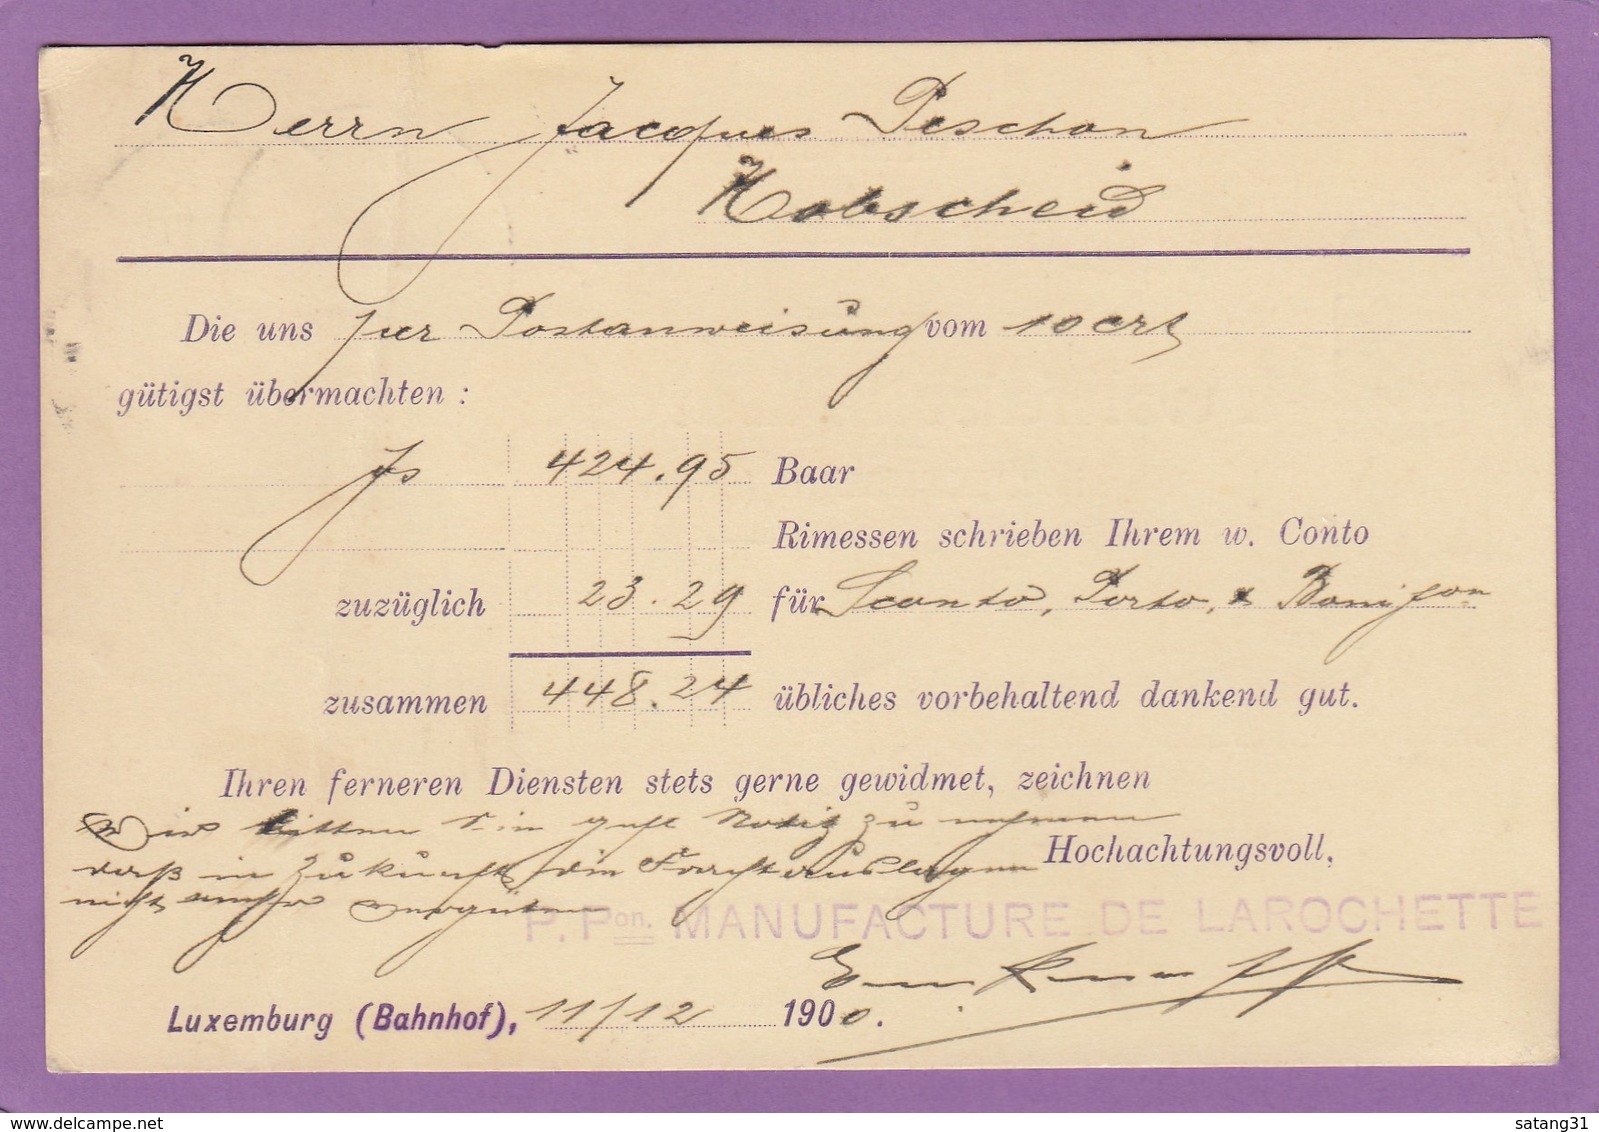 Herrn Jacques Peschon
Habscheid
Die uns per Postanweisung vom 10 crt
gütigst übermachten :
fs 424.95 Baar
Rimessen schrieben Ihrem w. Conto
zuzüglich 23.29 für Sconto, Porto, & Bonifon
zusammen 448.24 übliches vorbehaltend dankend gut.
Ihren ferneren Diensten stets gerne gewidmet, zeichnen
Wir bitten Sie gefl Notiz zu nehmen
daß in Zukunft die Frachtauslagen
Hochachtungsvoll,
nicht mehr vergüten
P. Pon. MANUFACTURE DE LAROCHETTE
Luxemburg (Bahnhof), 11/12 1900.
satang31